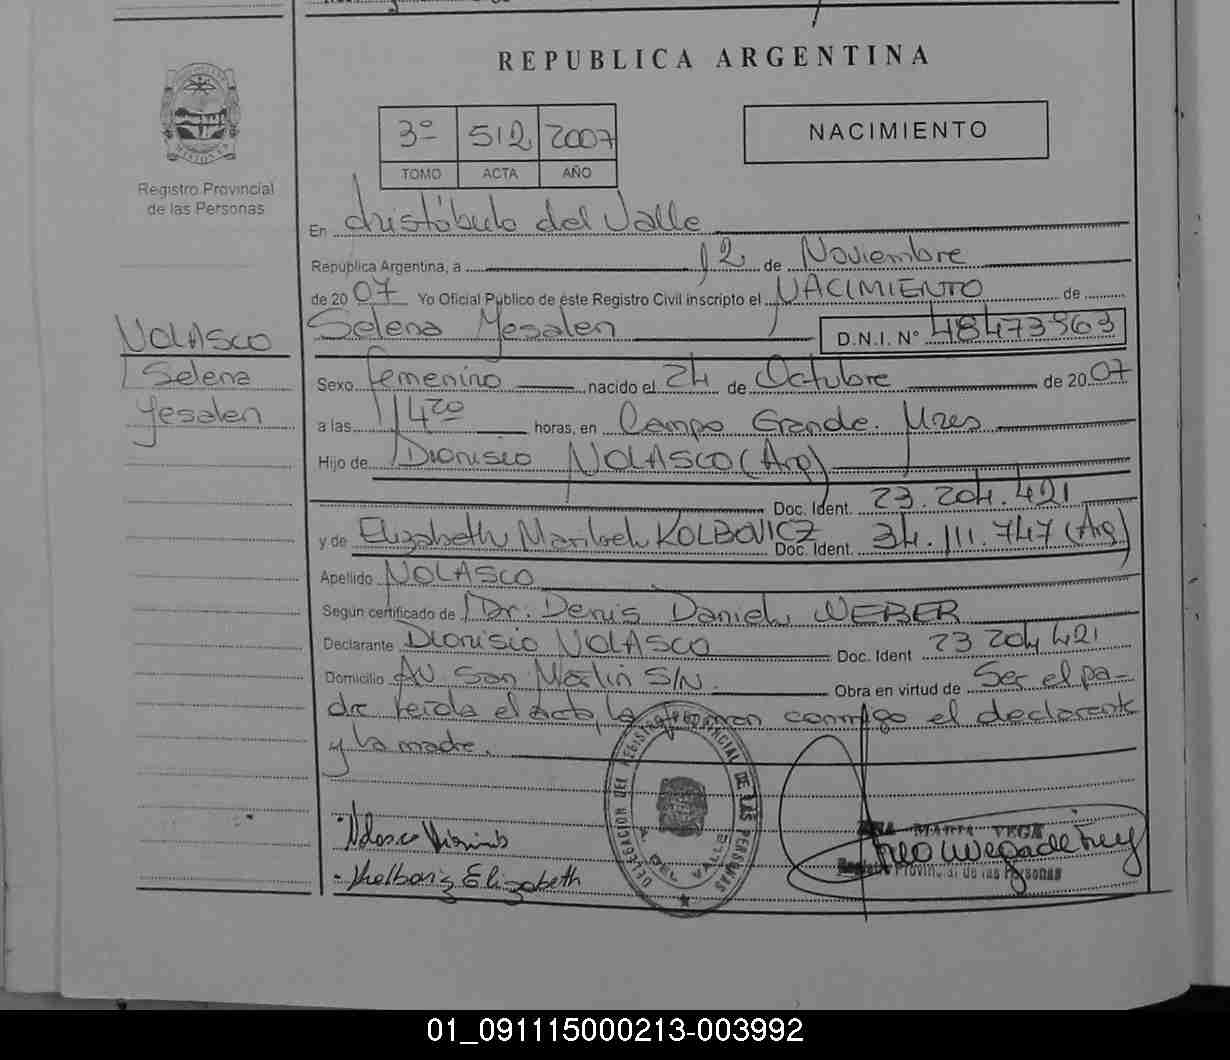 REPUBLICA ARGENTINA
3º 512 2007
TOMO ACTA AÑO
NACIMIENTO
MISIONES
Registro Provincial
de las Personas
En Aristóbulo del Valle
República Argentina, a 12 de Noviembre
de 2007 Yo Oficial Público de éste Registro Civil inscripto el NACIMIENTO de
Selena Yesalen D.N.I. Nº 48473963
NOLASCO
Selena
Yesalen
Sexo femenino nacido el 24 de Octubre de 2007
a las 14 20 horas, en Campo Grande. Mnes
Hijo de Dionisio NOLASCO (Arg)
Doc. Ident. 23.204.421
y de Elizabeth Maribel KOLBOVICZ Doc. Ident. 34.111.747 (Arg)
Apellido NOLASCO
Según certificado de Dr. Denis Daniel WEBER
Declarante Dionisio NOLASCO Doc. Ident 23 204 421
Domicilio AV San Martin S/N. Obra en virtud de Ser el pa-
dre leída el acta, la firman conmigo el declarante
y la madre.
DELEGACION DEL REGISTRO PROVINCIAL DE LAS PERSONAS
A. DEL VALLE
Nolasco Dionisio
Elizabeth
ANA MARIA VEGA
Registro Provincial de las Personas
01_091115000213-003992